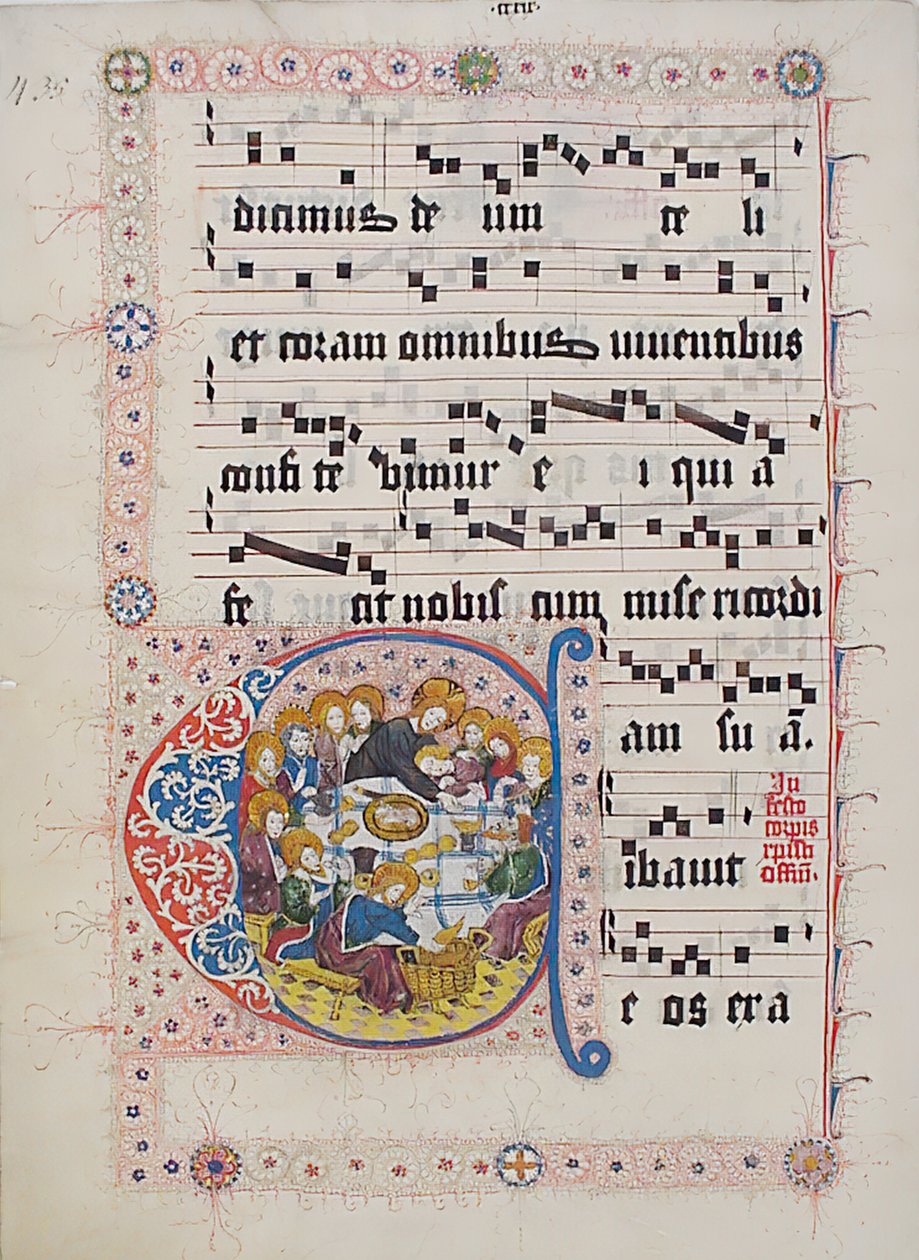 ·cxxix·
435
dicimus de um ce li
et coram omnibus uiuentibus
confi te bimur e i qui a
fe cit nobis cum mise ricordi
am su ā.
In
festo
corpis
xpisti
offiū.
C ibauit
e os ex a